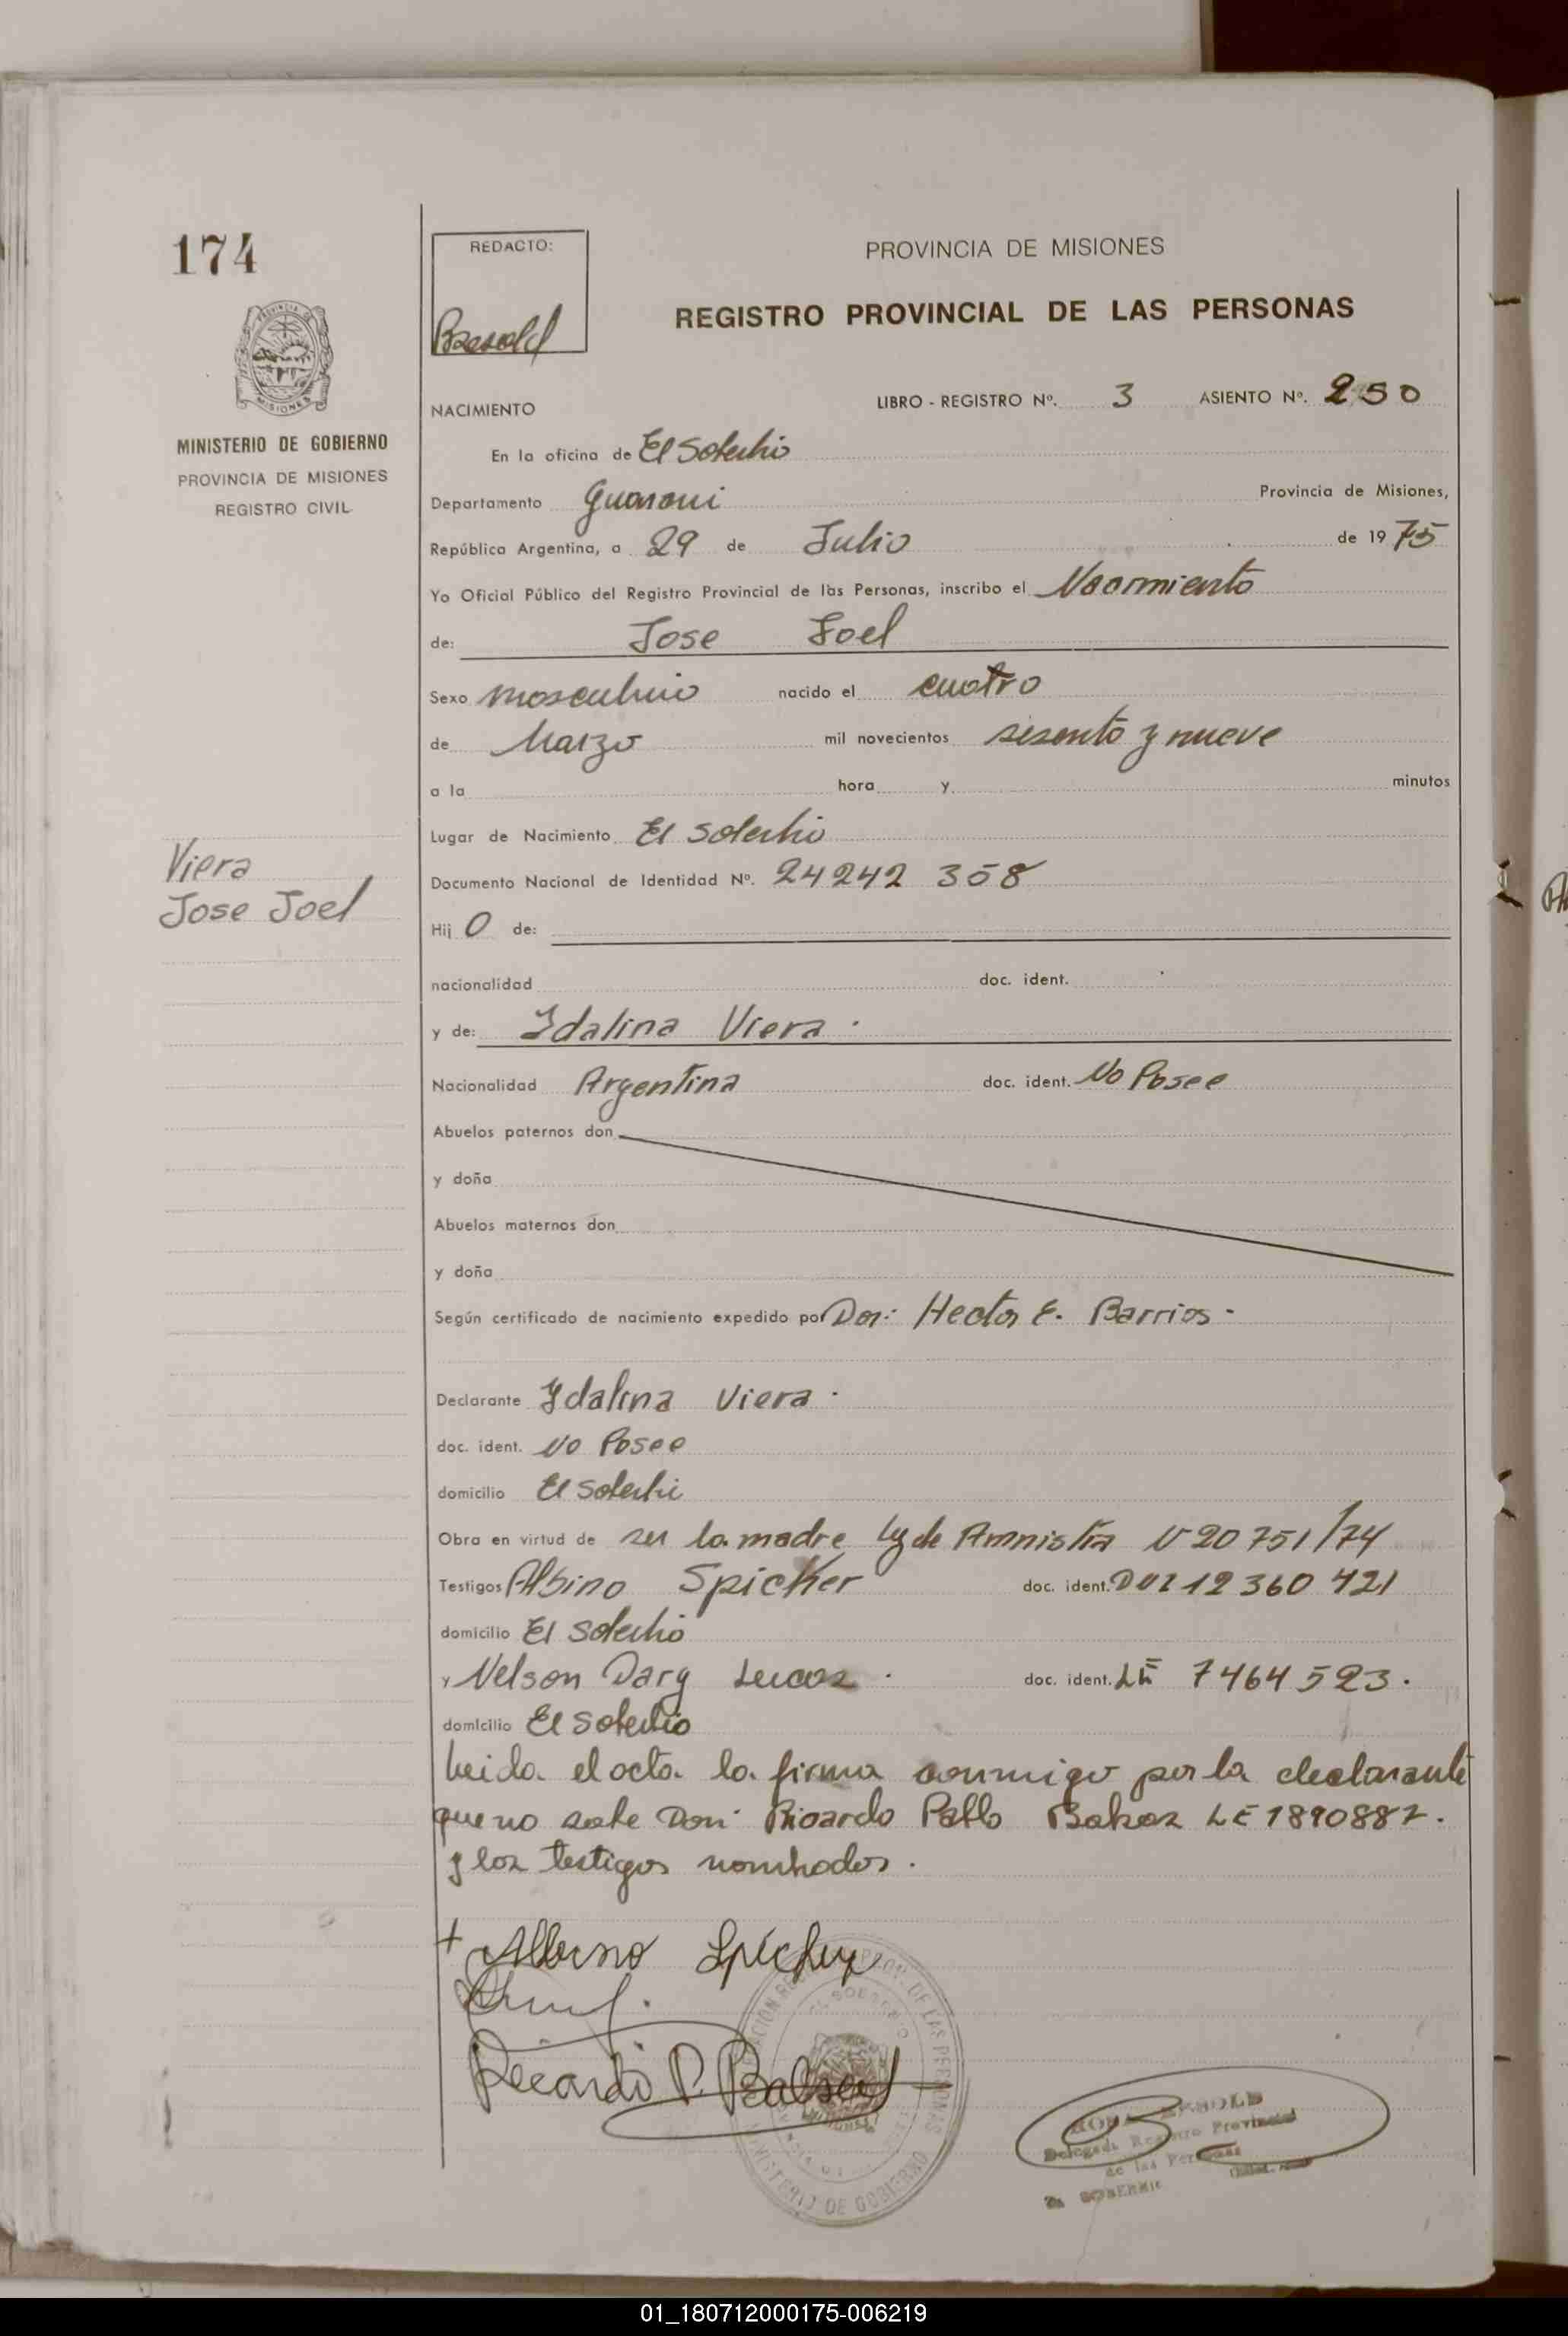 174
REDACTO:
Besold
PROVINCIA DE MISIONES
REGISTRO PROVINCIAL DE LAS PERSONAS
MINISTERIO DE GOBIERNO
PROVINCIA DE MISIONES
REGISTRO CIVIL
NACIMIENTO LIBRO - REGISTRO Nº. 3 ASIENTO Nº. 250
En la oficina de El Soberbio
Departamento Guarani Provincia de Misiones,
República Argentina, a 29 de Julio de 1975
Yo Oficial Público del Registro Provincial de las Personas, inscribo el Nacimiento
de: Jose Joel
Sexo masculino nacido el cuatro
de Marzo mil novecientos sesenta y nueve
a la hora y minutos
Lugar de Nacimiento El Soberbio
Viera
Jose Joel
Documento Nacional de Identidad Nº. 24242 358
Hij o de:
nacionalidad doc. ident.
y de: Idalina Viera.
Nacionalidad Argentina doc. ident. No Posee
Abuelos paternos don
y doña
Abuelos maternos don
y doña
Según certificado de nacimiento expedido por Dor: Hector E. Barrios -
Declarante Ydalina Viera.
doc. ident. No Posee
domicilio El Soberbi
Obra en virtud de ser la madre Ley de Amnistia Nº 20751/74
Testigos Albino Spicker doc. ident. DNI 12 360 421
domicilio El Soberbio
y Nelson Dary Lucas. doc. ident. LE 7464523.
domicilio El Soberbio
Leida el acta la firma conmigo por la declarante
que no sabe Don: Ricardo Pablo LE 1890887.
y los testigos nombrados.
+ Albino Spicker
Ricardo P.
PROV. DE LAS PERSONAS
EL SOBERBIO
MISIONES
MINISTERIO DE GOBIERNO
Delegada Registro Provincial
de las Personas
EL SOBERBIO
01_180712000175-006219